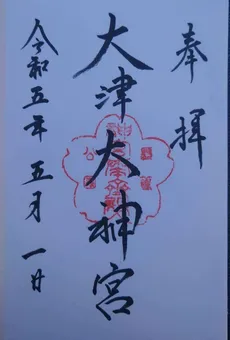 奉拝
大津大神宮
令和五年五月一廿